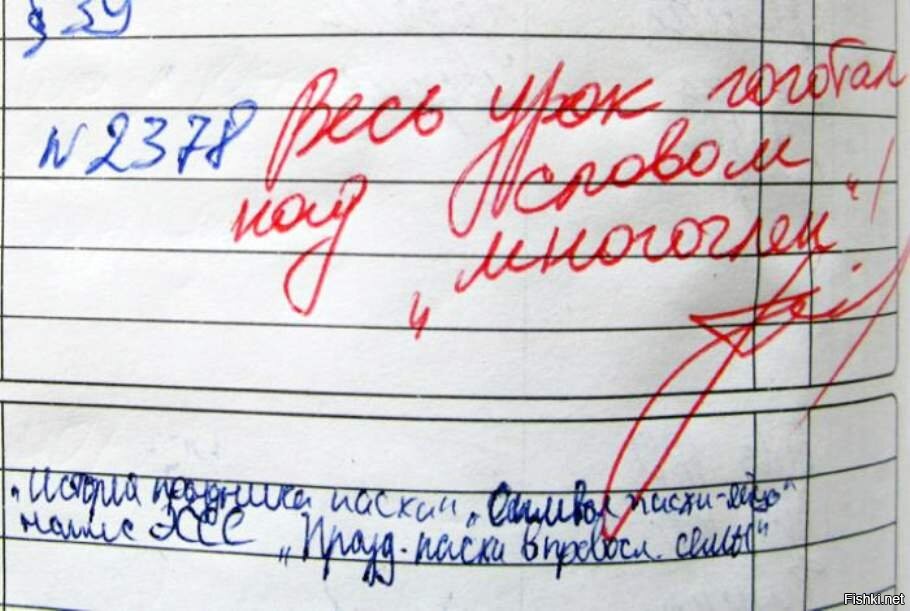 § 39
N 2378
Весь урок гоготал
над словом
„многочлен“!
„История праздника пасхи „Символ пасхи-яйцо“
напис ЭССЕ „Празд. пасхи в правосл. семье“
Fishki.net